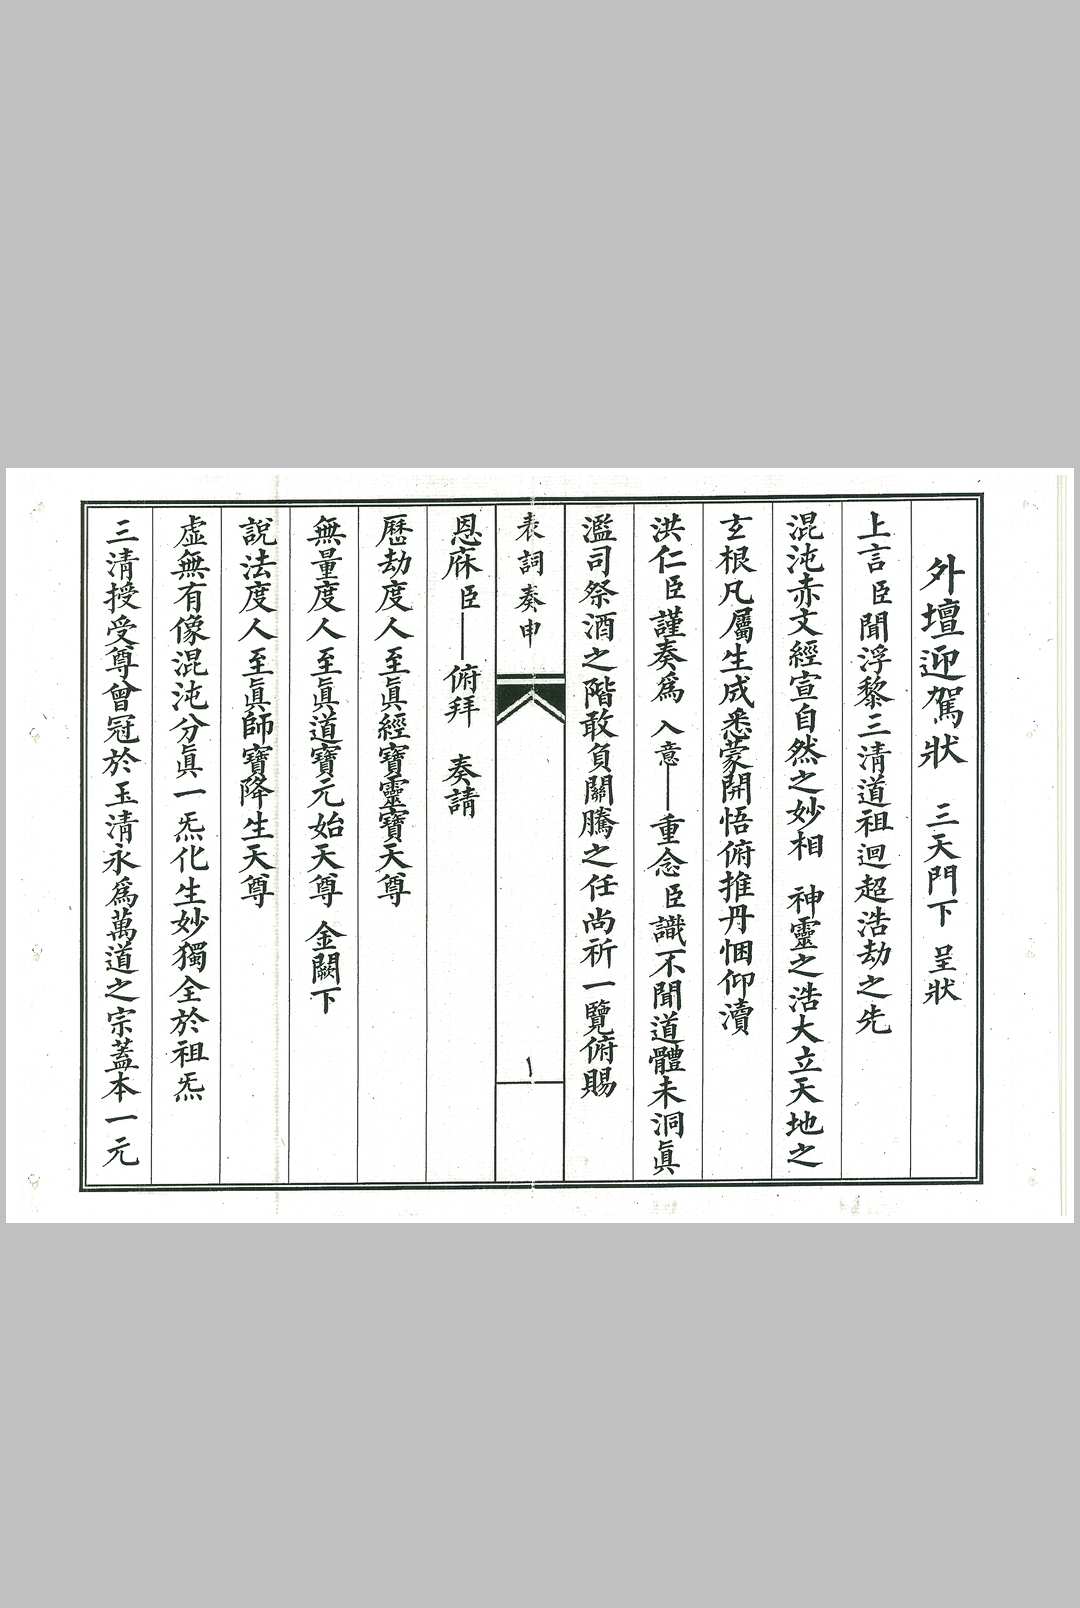 外壇迎駕狀 三天門下 呈狀
上言臣聞浮黎三淸道祖迴超浩劫之先
混沌赤文經宣自然之妙相 神靈之浩大立天地之
玄根凡屬生成悉蒙開悟俯推丹悃仰瀆
洪仁臣謹奏爲 入意——重念臣識不聞道體未洞眞
濫司祭酒之階敢負關騰之任尚祈一覽俯賜
表詞奏申 1
恩庥臣——俯拜 奏請
歷劫度人至眞經寶靈寶天尊
無量度人至眞道寶元始天尊 金闕下
說法度人至眞師寶降生天尊
虛無有像混沌分眞一炁化生妙獨全於祖炁
三淸授受尊曾冠於玉淸永爲萬道之宗蓋本一元